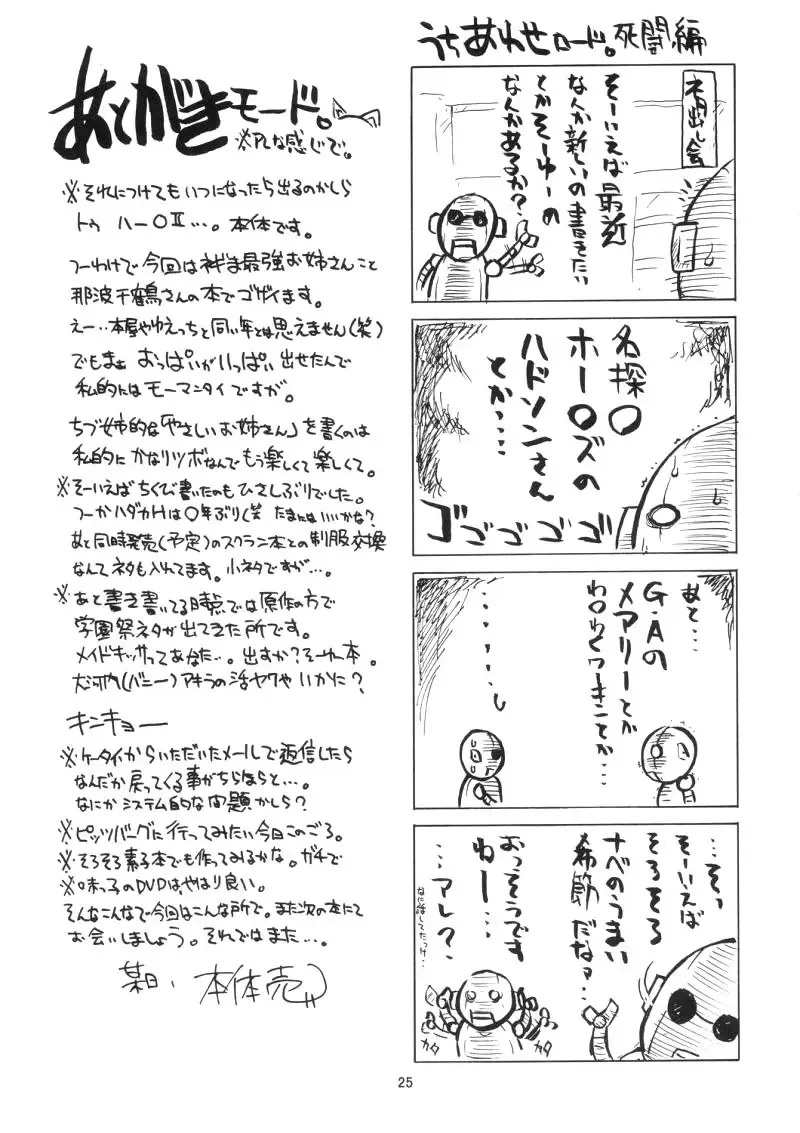 あとがきモード。
※PLな感じで。
※それにつけてもいつになったら出るのかしら
トゥ ハー〇Ⅱ…。本体です。
つーわけで今回はネギま最強お姉さんこと
那波千鶴さんの本でゴザイます。
えー‥本屋やゆえっちと同い年とは思えません(笑)
でもまぁ おっぱいがいっぱい出せたんで
私的にはモーマンタイですが。
ちづ姉的な「やさしいお姉さん」を書くのは
私的にかなりツボなんでもう楽しくて楽しくて。
※そーいえばちくび書いたのもひさしぶりでした。
つーかハダカHは〇年ぶり(笑 たまにはいいかな?
あと同時発売(予定)のスクラン本との制服交換
なんてネタも入れてます。小ネタですが…。
※あと書き書いてる時点では原作の方で
学園祭ネタが出てきた所です。
メイドキッサってあなた…。出すか?そーゆー本。
大河内(バニー)アキラの活ヤクやいかに?
キンキョー
※ケータイからいただいたメールで返信したら
なんだか戻ってくる事がちらほらと…。
なにかシステム的な問題かしら?
※ピッツバーグに行ってみたい今日このごろ。
※そろそろ素子本でも作ってみるかな。ガチで
※味っ子のDVDはやはり良い。
そんなこんなで今回はこんな所で。また次の本にて
お会いしましょう。それではまた…。
某日、本体売
うちあわせロード。死闘編
ネタ出し会
そーいえば最近
なんか新しいの書きたい
とかそーゆーの
なんかあるか?
名探〇
ホー〇ズの
ハドソンさん
とか‥‥
ゴゴゴゴゴ
あと…
G・Aの
メアリーとか
わ〇わくワーキンとか…
・・・・・・
…そっ
そーいえば
そろそろ
ナベのうまい
季節だなァ…
おっそうです
ねー…
…アレ?
なに話してたっけ…
カタ
カタ
25